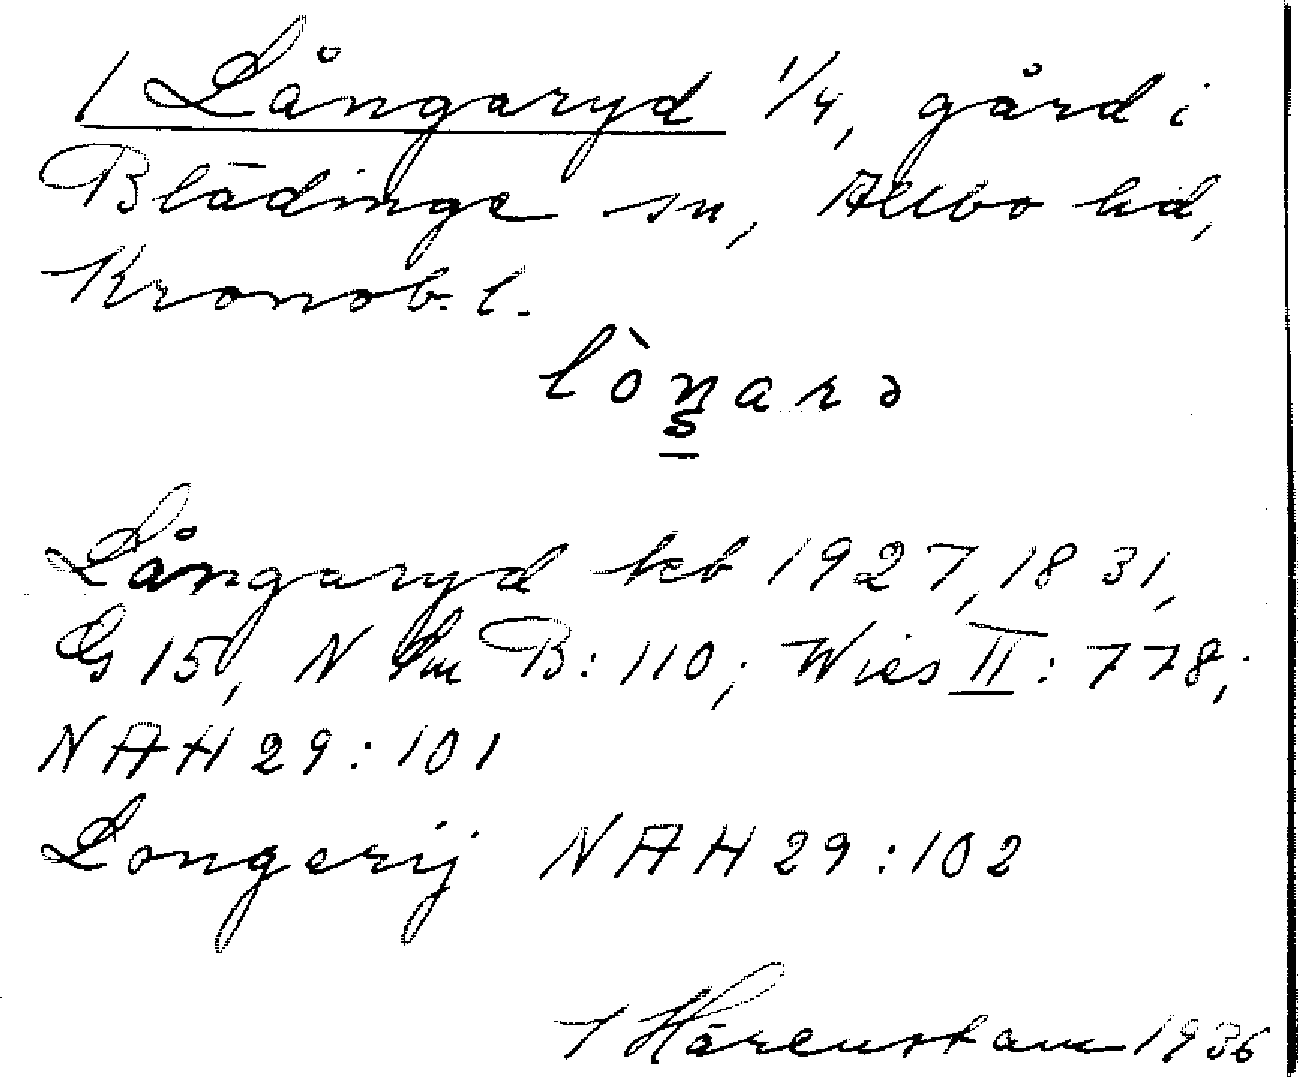 1 Långaryd 1/4, gård i
Blädinge sn, Allbo hd,
Kronob. l.
lòŋarə
Långaryd kb 1927, 1831,
G 15, N Sm B: 110; Wies II: 778;
NAH 29: 101
Longerij NAH 29: 102
Härenstam 1936